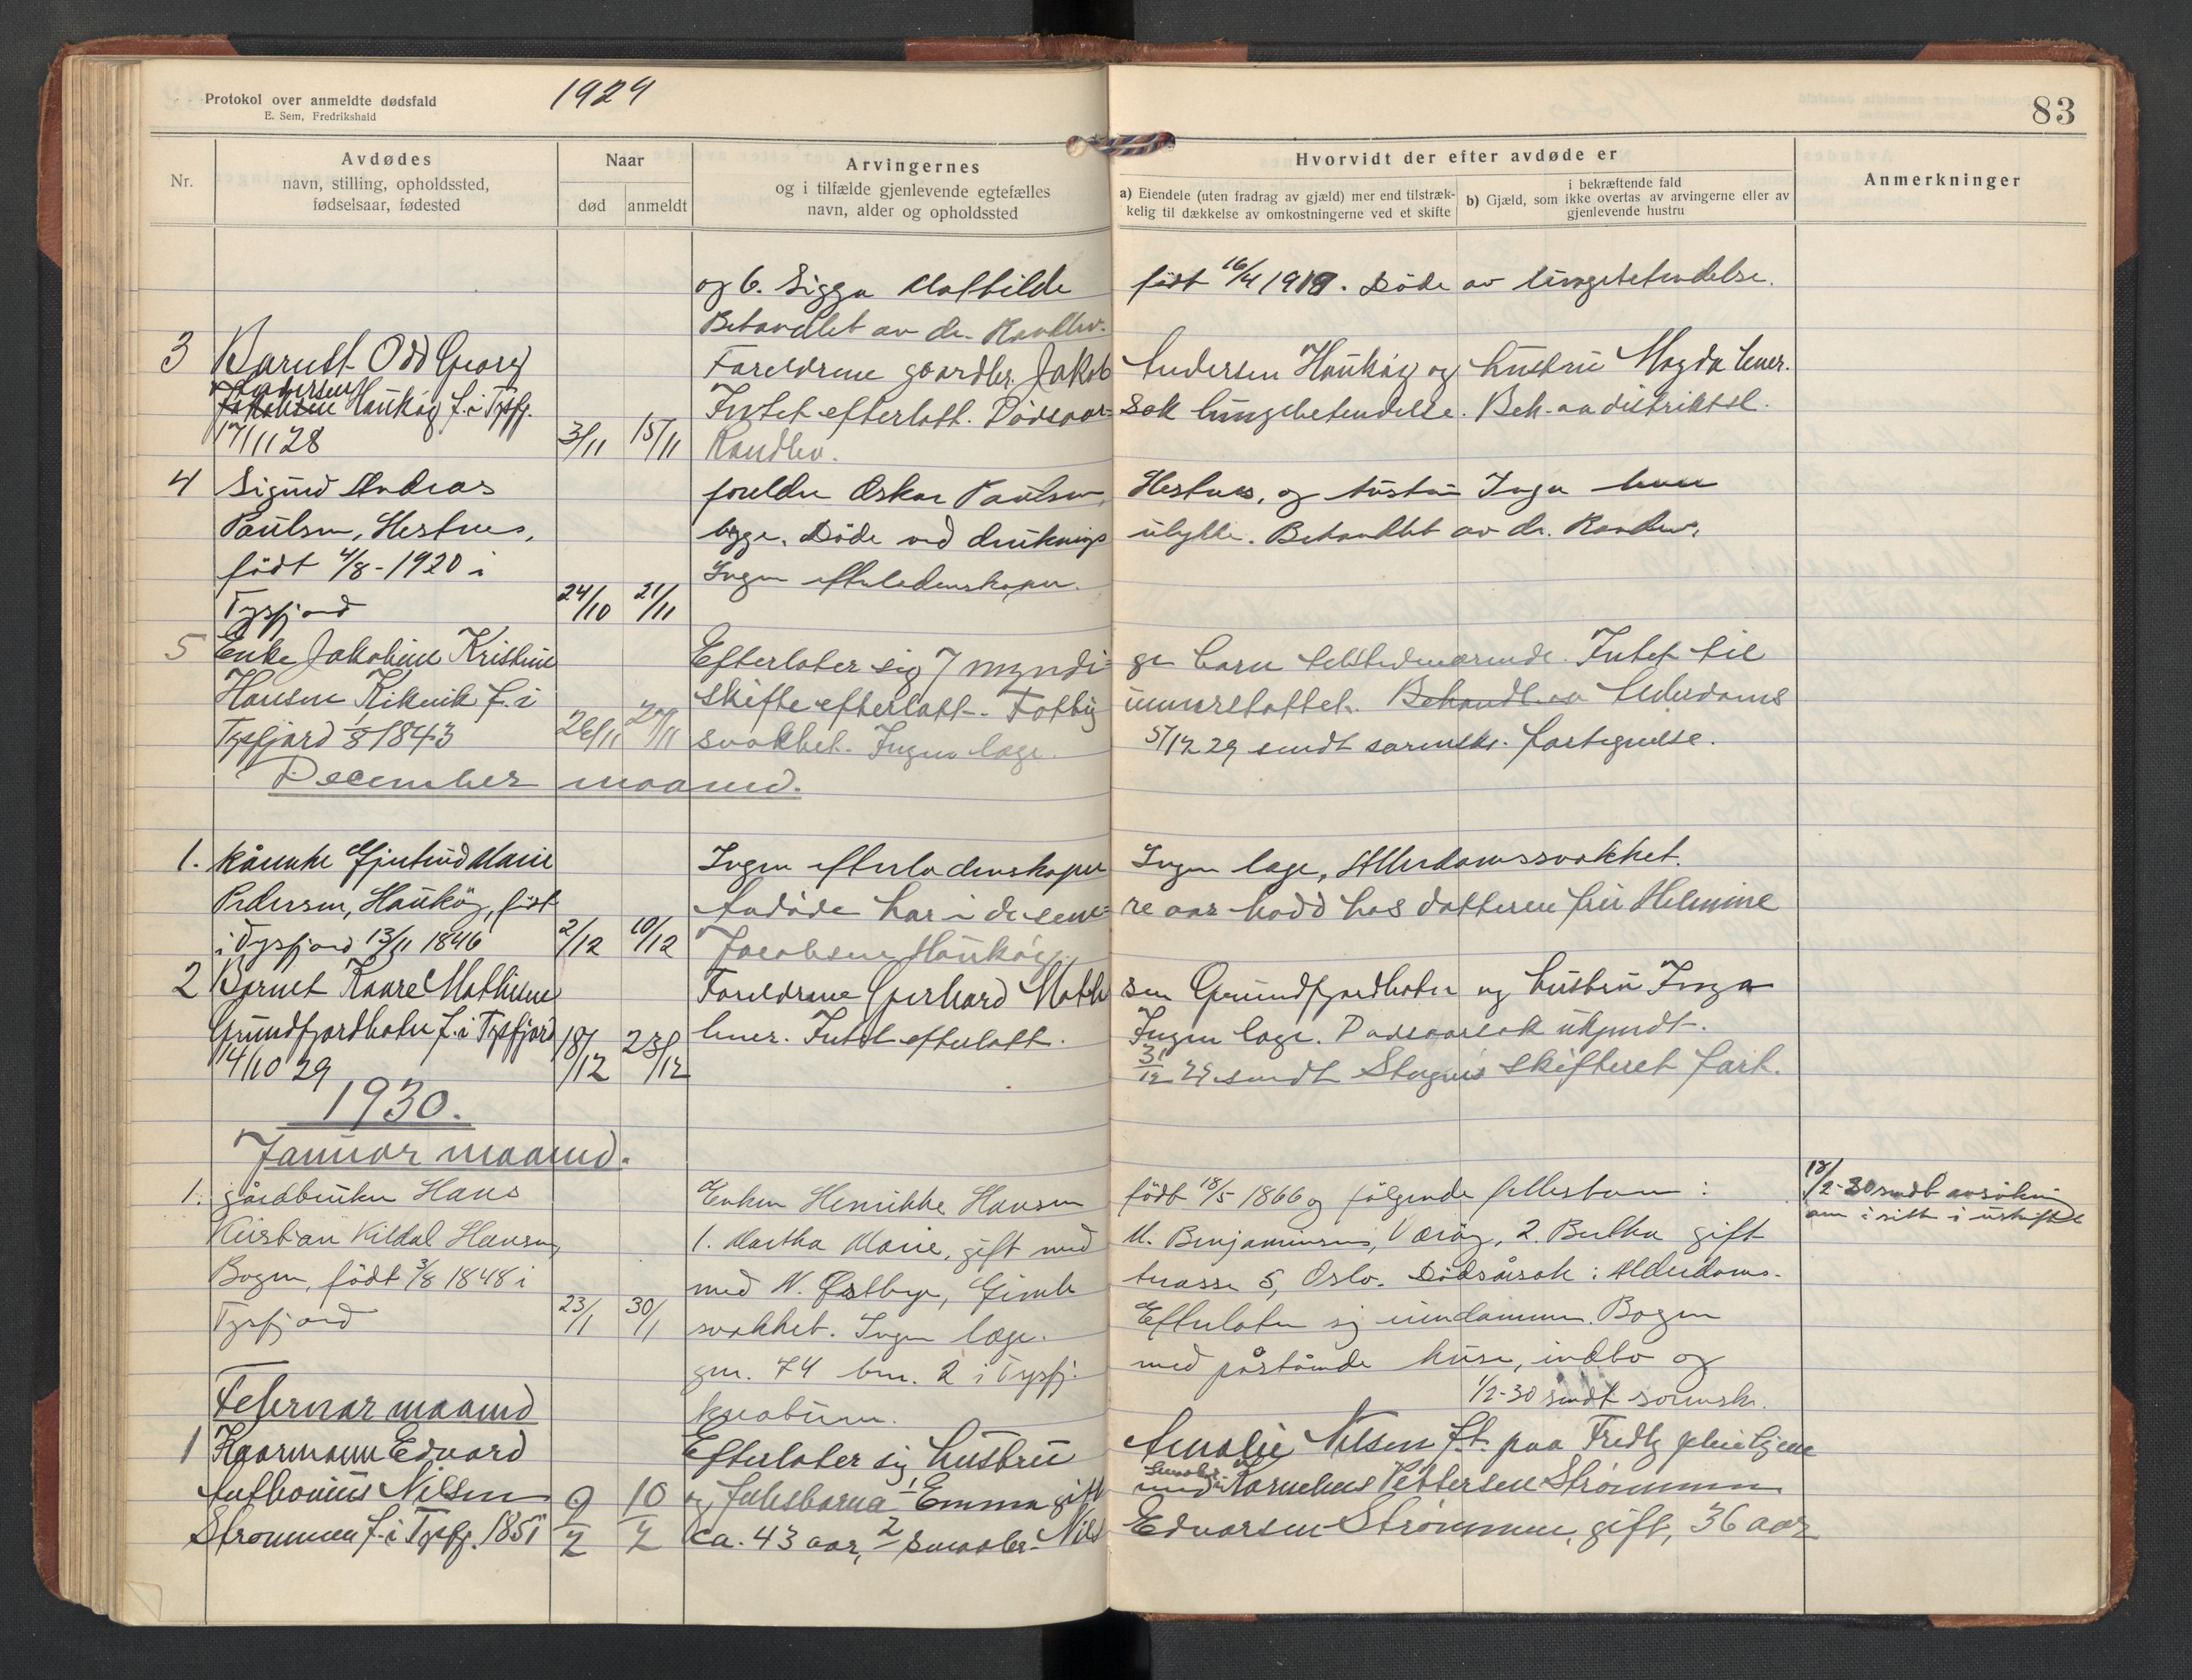 Protokol over anmeldte dødsfald
E. Sem, Fredrikshald
1929
83
Nr.
Avdødes
navn, stilling, opholdssted,
fødselsaar, fødested
Naar
død anmeldt
Arvingernes
og i tilfælde gjenlevende egtefælles
navn, alder og opholdssted
Hvorvidt der efter avdøde er
a) Eiendele (uten fradrag av gjæld) mer end tilstræk-
kelig til dækkelse av omkostningerne ved et skifte
i bekræftende fald
b) Gjæld, som ikke overtas av arvingerne eller av
gjenlevende hustru
Anmerkninger
og 6. Sigga Mathilde født 16/4 1919. Døde av lungebetendelse.
Behandlet av dr. Randlev.
3 Barnet Odd Georg Foreldrene gaardbr. Jakob Andersen Haukøy og hustru Magda
Andersen
Jakobsen Haukøy f. i Tysfj. Intet efterlatt. Dødsaar- sak lungebetendelse. Beh. av distriktsl.
17/11 28 3/11 15/11 Randlev.
4 Sigurd Andreas foreldre Oskar Paulsen, Hestnes, og hustru Inga
Paulsen, Hestnes, begge. Døde ved druknings ulykke. Behandlet av dr. Randlev.
født 4/8-1920 i Ingen efterladenskaper.
Tysfjord 24/10 21/11
5 Enke Jakobine Kristine Efterlater sig 7 myndi- ge barn tilstedeværende. Intet til
Hansen Kikvik f. i skifte efterlatt. Fattig understøttet. Behandl. av Alderdoms
Tysfjord 1/8 1843 26/11 27/11 svakhet. Ingen læge. 5/12 29 sendt sorenskr. fortegnelse.
December maaned.
1. kårenke Gjertrud Marie Ingen efterladenskaper Ingen læge, Alderdomssvakhet.
Pedersen, Haukøy, født Avdøde har i de sene- re aar hadd hos datteren fru Helmine
i Tysfjord 13/11 1846 2/12 10/12 Jacobsen Haukøy.
2 Barnet Kaare Mathisen Foreldrene Gerhard Mathi sen Grundfjordbotn og hustru Inga
Grundfjordbotn f. i Tysfjord 18/12 23/12 Intet efterlatt. Ingen læge. Dødsaarsak ukjendt.
14/10 29 31/12 29 sendt skifteret fort.
1930.
Januar maaned.
1. gårdbruker Hans Enken Henrikke Hansen født 18/5 1866 og følgende fellesbarn:
12/2-30 sendt ansøkning
om i sitte i uskifte
Kristian Kildal Hansen, 1. Martha Marie, gift med M. Benjaminsen, Værøy, 2. Bertha gift
Bogen, født 3/8 1848 i med N. Østbye, Gimle terasse 5, Oslo. Dødsårsak: Alderdoms-
Tysfjord 23/1 30/1 svakhet. Ingen læge. Efterlater sig eiendommen Bogen
gnr. 74 bnr. 2 i Tysfj. med påstående huse, indbo og
kreaturer. 1/2-30 sendt sorenskr.
Februar maaned
1 Kaarmann Edvard Efterlater sig hustru Amalie Nilsen f.t. paa Fredly pleiehjem
Anthonius Nilsen og fellesbarna 1 Emma gift med Kornelius Pettersen Strømmen
Strømmen f. i Tysfj. 1851 9/2 10/2 ca. 43 aar, 2 smaabr. Nils Edvarsen Strømmen, gift, 36 aar